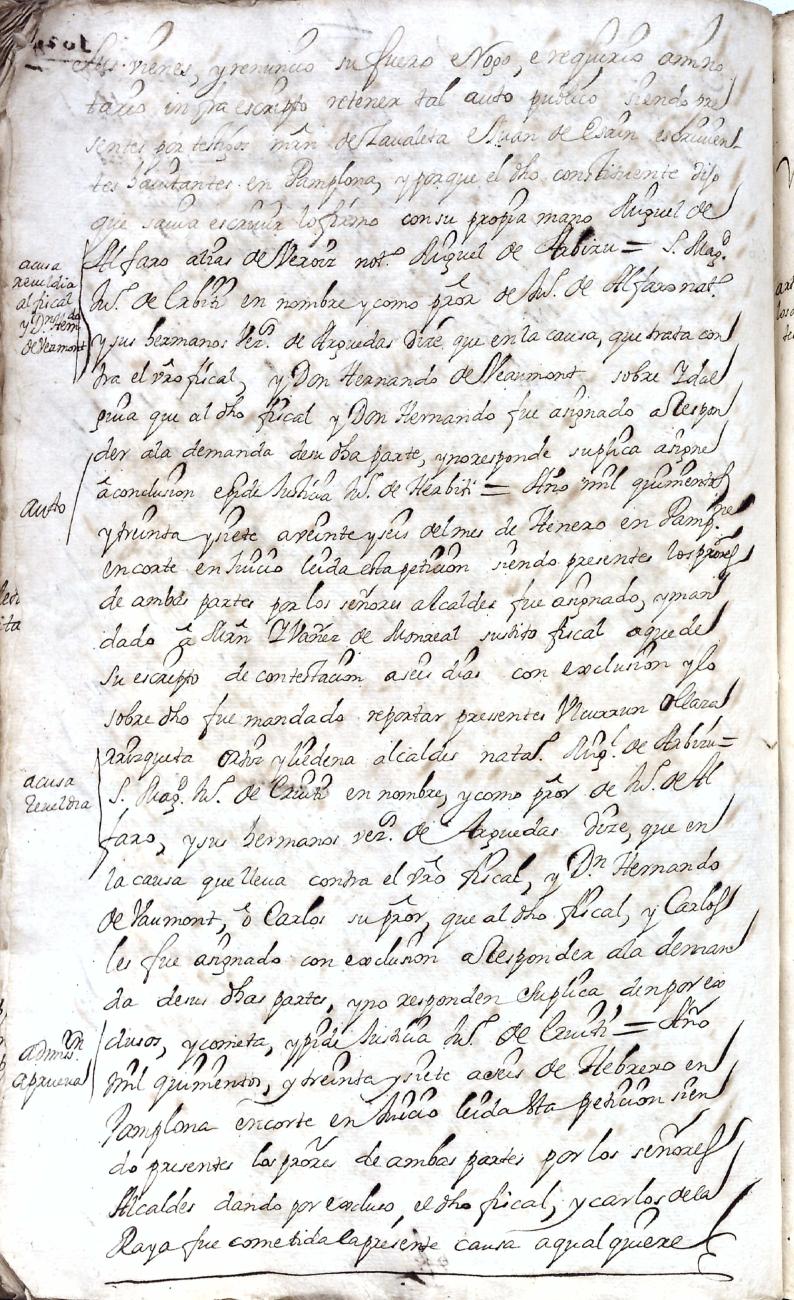 sus vienes, y renuncio su fuero e Nego, e requirio a mi no
tario infra escripto retener tal auto publico siendo pre
sentes por testigos mrn de Zavaleta e Juan de Esain escriuien
tes hauitantes en Pamplona, y porque el dho constituiente dijo
que sauia escriuir lo firmo con su propia mano Miguel de
Alfaro alias de Veroiz not.º Miguel de Arbizu = S. Mag.d
acusa
reueldia
al fiscal
y D.n Hern.do
de Veamont
Ju.º de en nombre y como pror de Ju.º de Alfaro nat.l
y sus hermanos vez.s de Arguedas Dize, que en la causa, que trata con
tra el vro fiscal, y Don Hernando de Veaumont, sobre Ydal
guia que al dho fiscal y Don Hernando fue asignado a Respon
der ala demanda desu dha parte, y no responde suplica asigne
auto
â conclusion epide Justicia Ju.º de = Año mil quinientos
y treinta y siete a veinte y seis del mes de Henero en Pamp.na
en corte en Juicio leida esta peticion siendo presentes los prores
de ambas partes por los señores alcaldes fue asignado, y man
dado â Mrn Yvañez de Monreal sustito fiscal a que de
su escripto de contestacion a seis dias con exclusion y lo
sobre dho fue mandado reportar presentes Ollaca
rizqueta Ortiz y Liedena alcaldes nata.l Mig.l de Arbizu =
acusa
reueldia
S. Mag.d Ju.º de en nombre, y como pror de Ju.º de Al
faro, y sus hermanos vez.s de Arguedas Dize, que en
la causa que lleua contra el vro fiscal, y D.n Hernando
de Vaumont, ô Carlos su pror, que al dho fiscal, y Carlos
les fue asignado con exclusion a Responder ala deman
da desus dhas partes, y no responden Suplica den por ex
clusos, y cometa, y pide Justicia Ju.º de = Año
admis.on
aprueua
mil quinientos, y treinta y siete a seis de Hebrero en
Pamplona en corte en Juicio leida esta peticion sien
do presentes los prores de ambas partes por los señores
Alcaldes dando por excluso, el dho fiscal, y carlos dela
Raya fue cometida la presente causa a qual quiere